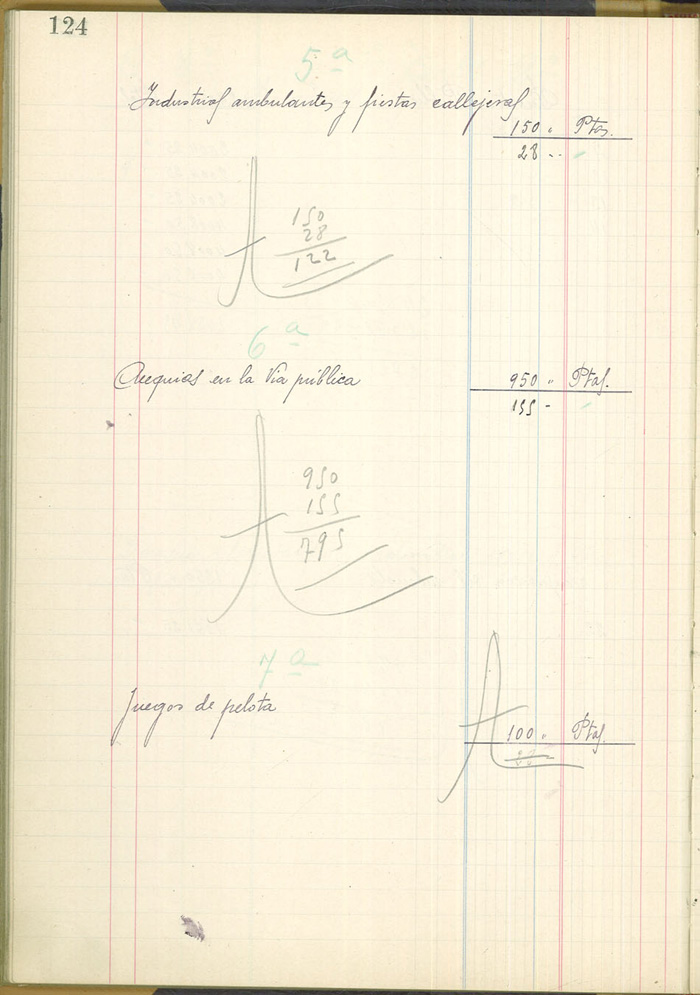 124
5ª
Industrias ambulantes y fiestas callejeras
150 " Ptas.
28 "
150
28
122
6ª
Acequias en la Vía pública
950 " Ptas.
155 -
950
155
795
7ª
Juegos de pelota
100 " Ptas.